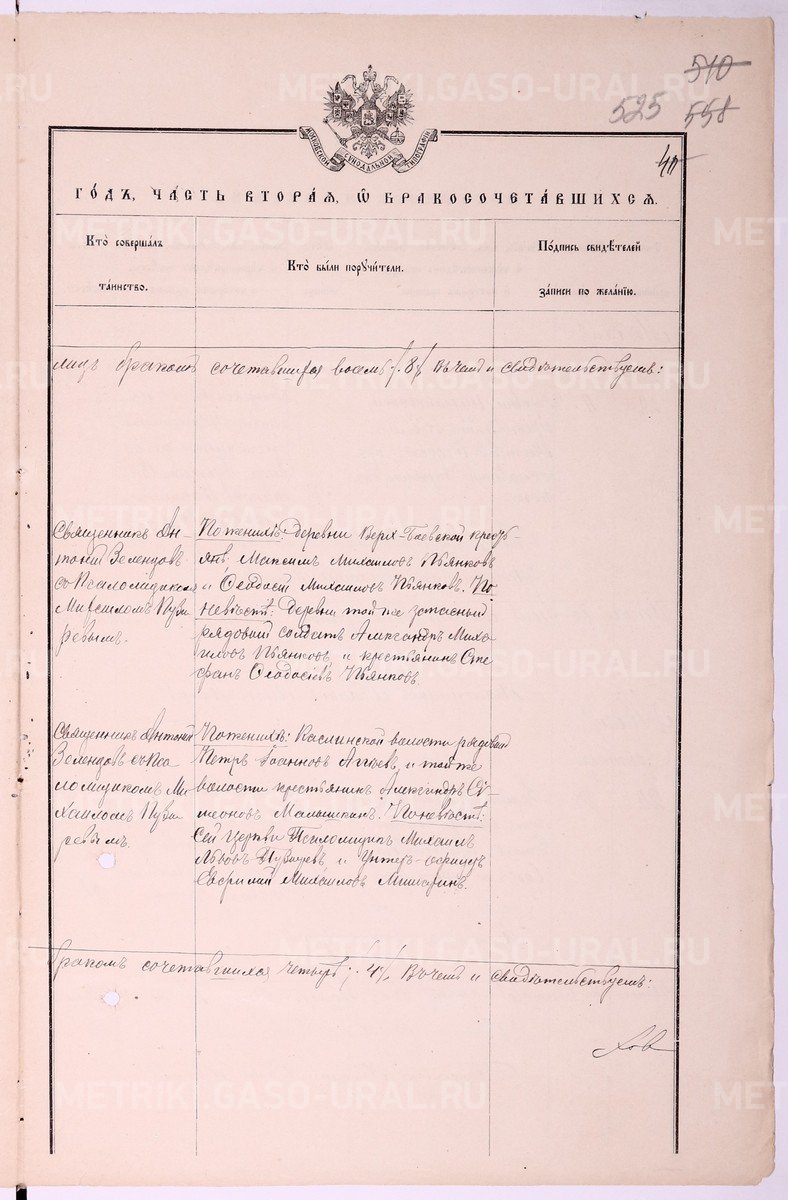 510
525 558
МОСКОВСКОЙ СѴНОДАЛЬНОЙ ТИПОГРАФІИ
ГО́ДЪ, ЧА́СТЬ ВТОРА́Ѧ, Ѡ҆ БРАКОСОЧЕТА́ВШИХСѦ.
Кто̀ соверша́лъ
та́инство.
Кто̀ бы́ли порꙋчи́тели.
По́дпись свидѣ́телей
за́писи по жела́нїю.
лицъ бракомъ сочетавшихся восемь /8/ Въ чемъ и свидѣтельствуемъ:
Священникъ Ан-
тоній Зеленцовъ
съ Псаломщикомъ
Михаиломъ Пузы-
ревымъ.
По женихѣ: деревни Верх-Баевской кресть-
янѣ, Максимъ Михаиловъ Пьянковъ
и Ѳеодосій Михаиловъ Пьянковъ. По
невѣстѣ: Деревни той же запасный
рядовый солдатъ Александръ Миха-
иловъ Пьянковъ и крестьянинъ Сте
фанъ Ѳеодосіевъ Пьянковъ.
Священникъ Антоній
Зеленцовъ съ Пса-
ломщикомъ Ми-
хаиломъ Пузы-
ревымъ.
По женихѣ: Каслинской волости рядовый
Петръ Іоанновъ и той же
волости крестьянинъ Александръ Си-
меоновъ Малышкинъ. По невѣстѣ:
Сей Церкви Псаломщикъ Михаилъ
Львовъ Пузыревъ и Унтеръ-офицеръ
Михаиловъ
бракомъ сочетавшихся четыре /4/. Въ чемъ и свидѣтельствуемъ:
METRIKI.GASO-URAL.RU